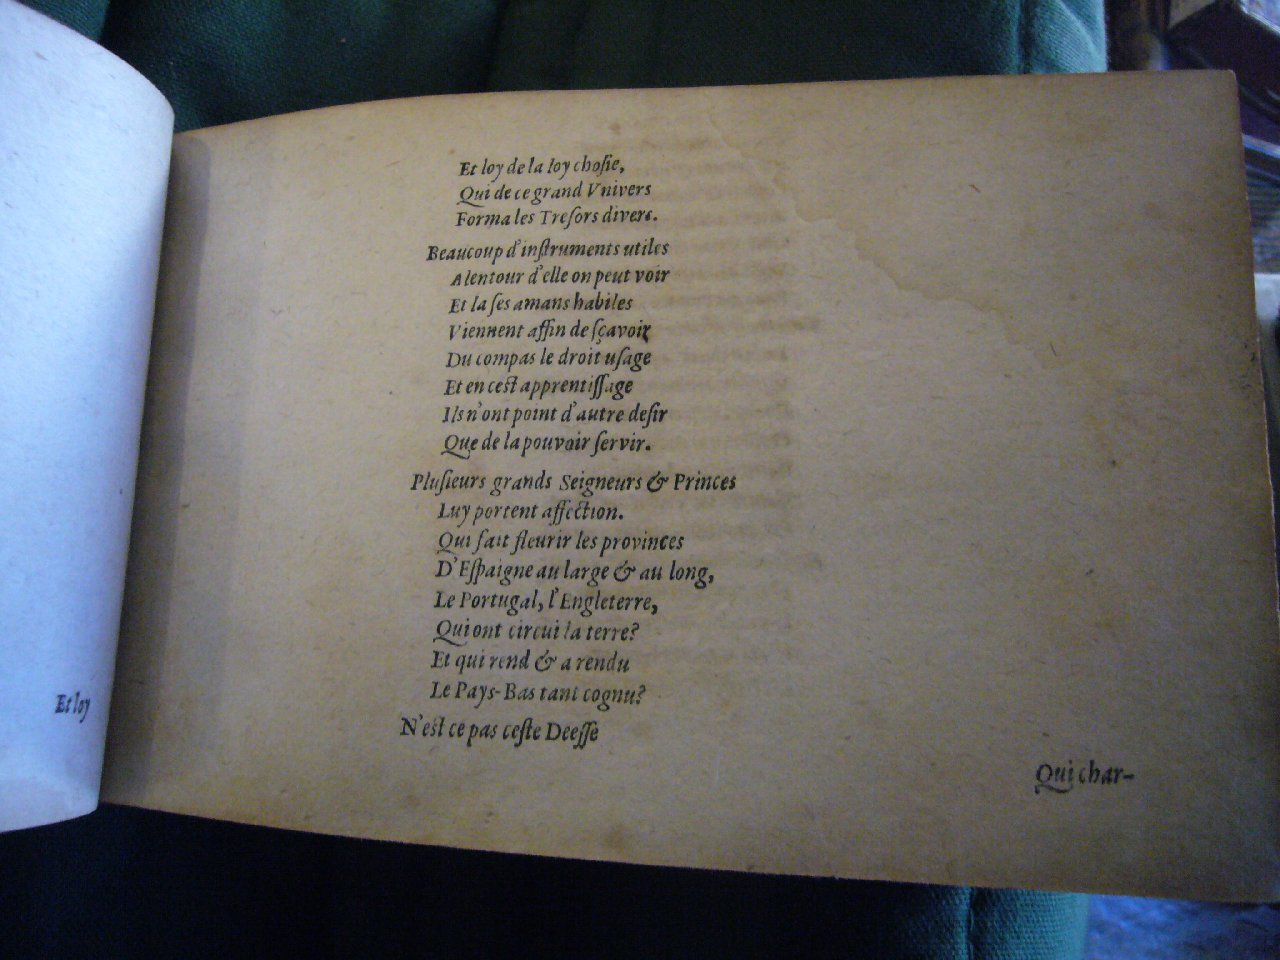 Et loy
Et loy de la loy choſie,
Qui de ce grand Vnivers
Forma les Treſors divers.
Beaucoup d'inſtruments utiles
Alentour d'elle on peut voir
Et la ſes amans habiles
Viennent affin de sçavoir
Du compas le droit uſage
Et en ceſt apprentiſſage
Ils n'ont point d'autre deſir
Que de la pouvoir ſervir.
Pluſieurs grands Seigneurs & Princes
Luy portent affection.
Qui fait fleurir les provinces
D'Eſpaigne au large & au long,
Le Portugal, l'Engleterre,
Qui ont circui la terre?
Et qui rend & a rendu
Le Pays-Bas tant cognu?
N'eſt ce pas ceſte Deeſſe
Qui char-